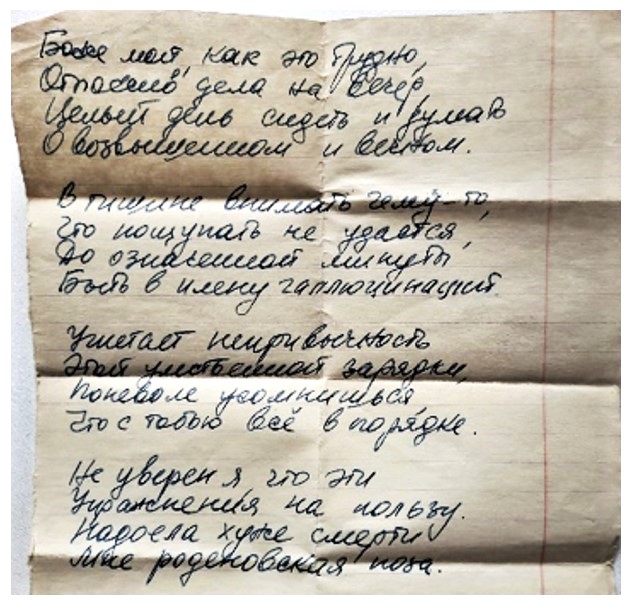 Боже мой, как это трудно,
Отложив дела на вечер,
Целый день сидеть и думать
О возвышенном и вечном.
В тишине внимать чему-то,
Что пощупать не удаётся,
До означенной минуты,
Быть в плену галлюцинаций.
Угнетает непривычность
Этой умственной зарядки,
Поневоле усомнишься
Что с тобою всё в порядке.
Не уверен я что эти
Упражнения на пользу.
Надоела хуже смерти
Мне роденовская поза.